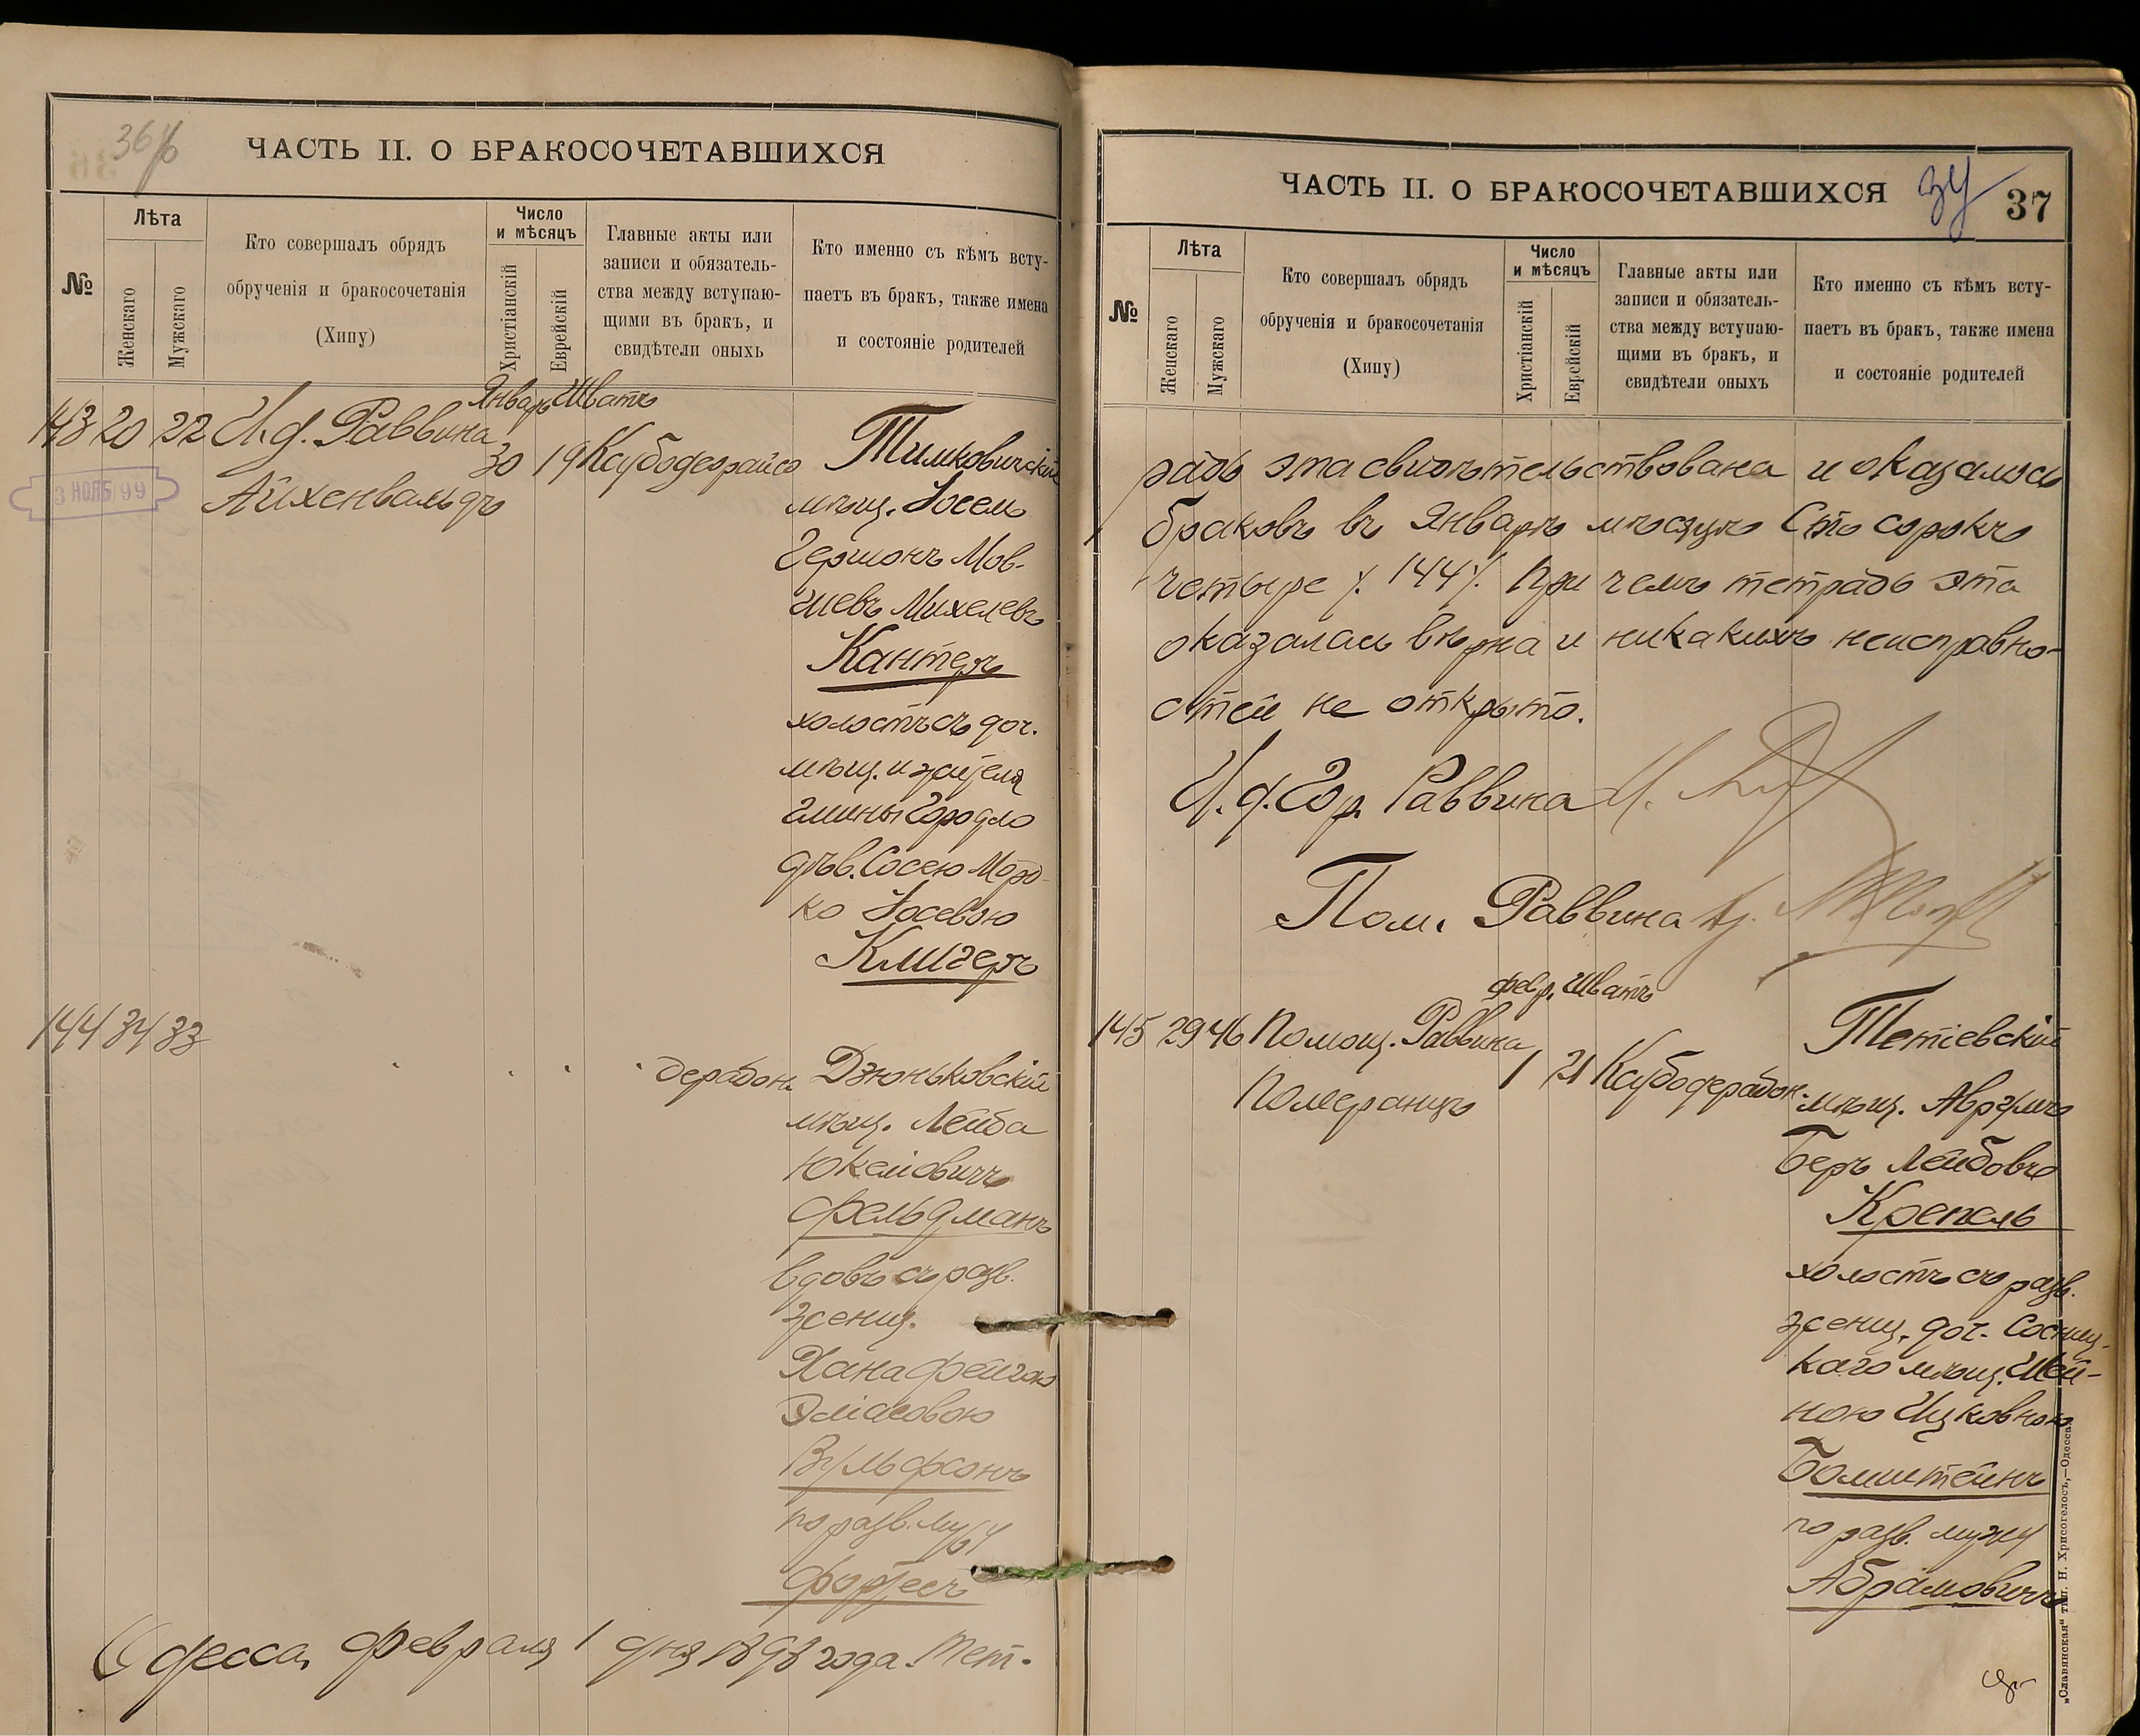 36/б
ЧАСТЬ II. О БРАКОСОЧЕТАВШИХСЯ
№
Лѣта
Женскаго
Мужскаго
Кто совершалъ обрядъ
обрученія и бракосочетанія
(Хипу)
Число
и мѣсяцъ
Христіанскій
Еврейскій
Главные акты или
записи и обязатель-
ства между вступаю-
щими въ бракъ, и
свидѣтели оныхъ
Кто именно съ кѣмъ всту-
паетъ въ бракъ, также имена
и состояніе родителей
Январь Шватъ
143 20 22 И. д. Раввина 30 19
3 НОЯБ 99
Айхенвальдъ
Тимковичскій
мѣщ. Іосель
Гершонъ Мов-
шевъ Михелевъ
Кантеръ
холостъ съ доч.
мѣщ. и жителя
гмины Городло
дѣв. Сосею Морд-
ко Іосевою
Клигеръ
144 34 33
Дзюньковскій
мѣщ. Лейба
Юкелiовичъ
Фельдманъ
вдовъ съ разв.
женщ.
Хана Фейгою
Эліасовою
Вульфсонъ
по разв. мужу
Одесса, Февраля 1 дня 1898 года. Тет-
ЧАСТЬ II. О БРАКОСОЧЕТАВШИХСЯ
37
№
Лѣта
Женскаго
Мужскаго
Кто совершалъ обрядъ
обрученія и бракосочетанія
(Хипу)
Число
и мѣсяцъ
Христіанскій
Еврейскій
Главные акты или
записи и обязатель-
ства между вступаю-
щими въ бракъ, и
свидѣтели оныхъ
Кто именно съ кѣмъ всту-
паетъ въ бракъ, также имена
и состояніе родителей
радь эта свидѣтельствована и оказалось
браковъ въ Январѣ мѣсяцѣ Сто сорокъ
четыре /. 144 /. При чемъ тетрадь эта
оказалась вѣрна и никакихъ неисправно-
стей не открыто.
И. д. Гор. Раввина
Пом. Раввина
февр. Шватъ
145 29 46 Помощ. Раввина 1 21
Померанцъ
Тетіевскій
мѣщ. Аврумъ
Беръ Лейбовъ
Крепель
холостъ съ разв.
женщ. доч. Сосниц-
каго мѣщ. Шей-
ною Ицковною
Бомштейнъ
по разв. мужу
Абрамовичъ
„Славянская" тип. Н. Хрисогелосъ,—Одесса.